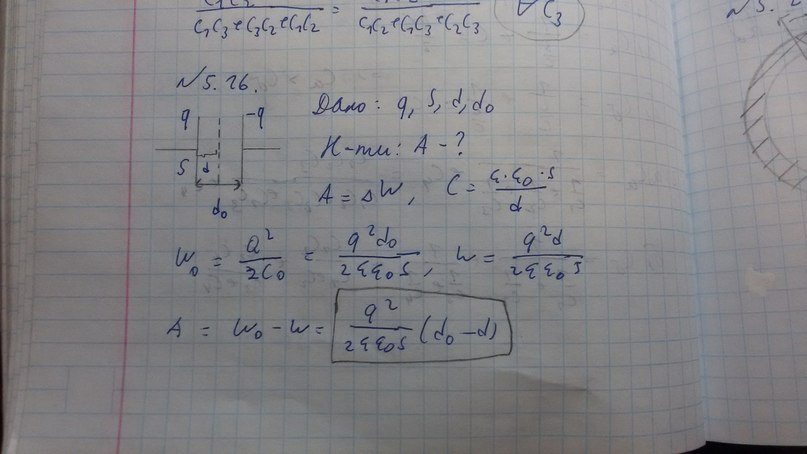 C₁C₃+C₃C₂+C₁C₂ = C₁C₂+C₁C₃+C₂C₃ ∀C₃
№5.26.
q -q
S d
d₀
Дано: q, S, d, d₀
Н-ти: A - ?
A = ΔW, C = ε·ε₀·S / d
W₀ = Q² / 2C₀ = q²d₀ / 2εε₀S, W = q²d / 2εε₀S
A = W₀ - W = q² / 2εε₀S (d₀ - d)
№5.2